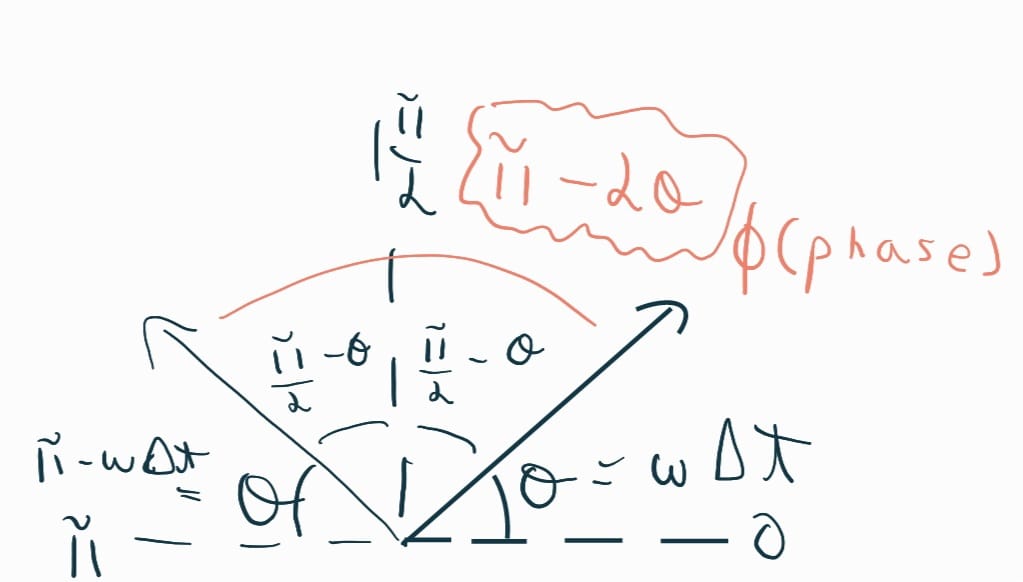 π/2
π - 2θ
ϕ(phase)
π/2 - θ
π/2 - θ
π - ωΔt = θ
θ = ωΔt
π
0